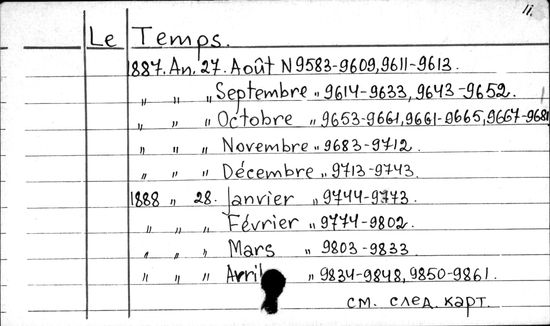 11.
Le Temps.
1887. An. 27. Août N 9583-9609, 9611-9613.
„ „ „ Septembre „ 9614-9633, 9643-9652.
„ „ „ Octobre „ 9653-9661, 9661-9665, 9667-9681
„ „ „ Novembre „ 9683-9712.
„ „ „ Décembre „ 9713-9743.
1888 „ 28. Janvier „ 9744-9773.
„ „ „ Février „ 9774-9802.
„ „ „ Mars „ 9803-9833
„ „ „ Avril „ 9834-9848, 9850-9861.
см. след. карт.